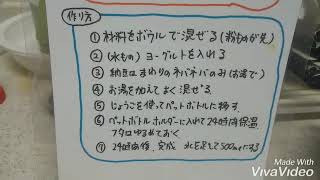 作り方
① 材料をボウルで混ぜる(粉ものが先)
② (水もの) ヨーグルトを入れる
③ 納豆のまわりのネバネバのみ(お湯で)
④ お湯を加えてよく混ぜる
⑤ じょうごを使ってペットボトルに移す
⑥ ペットボトルホルダーに入れて24時間保温
フタはゆるめておく
⑦ 24時間後、完成 水を足して500mlにする
Made With
VivaVideo